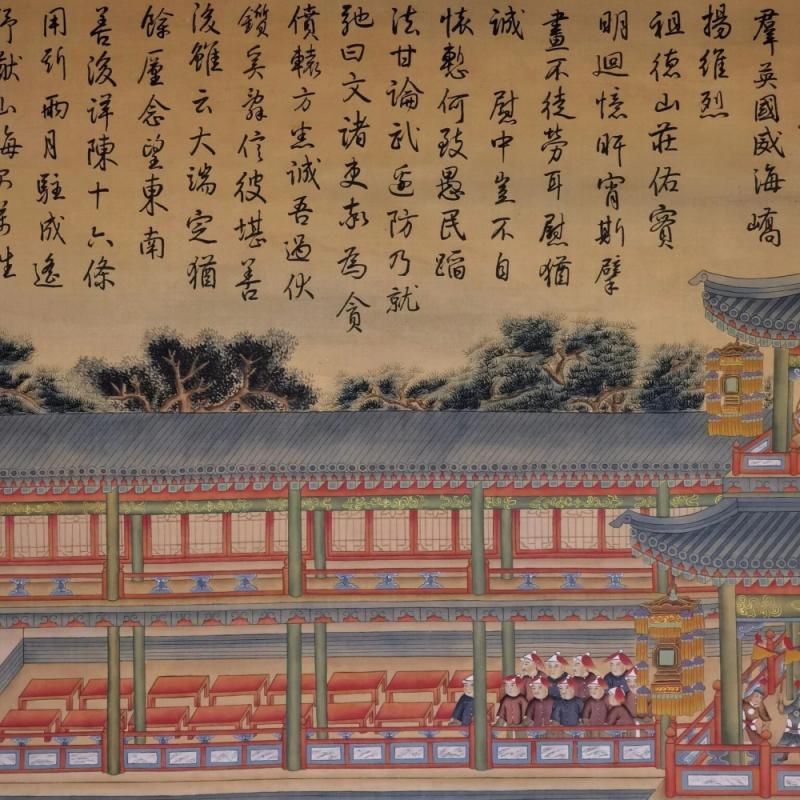 羣英國威海嶠
揚維烈
祖德山莊佑賓
明迴憶旰宵斯擘
畫不徒勞耳慰猶
誠 慰中豈不自
懐慙何致愚民蹈
法甘論武邊防乃就
弛曰文諸吏率為貪
債轅方恚誠吾過伙
鑚矣辭信彼堪善
後雖云大端定猶
餘屢念望東南
善後詳陳十六條
用斯兩月駐成遙
猷山海